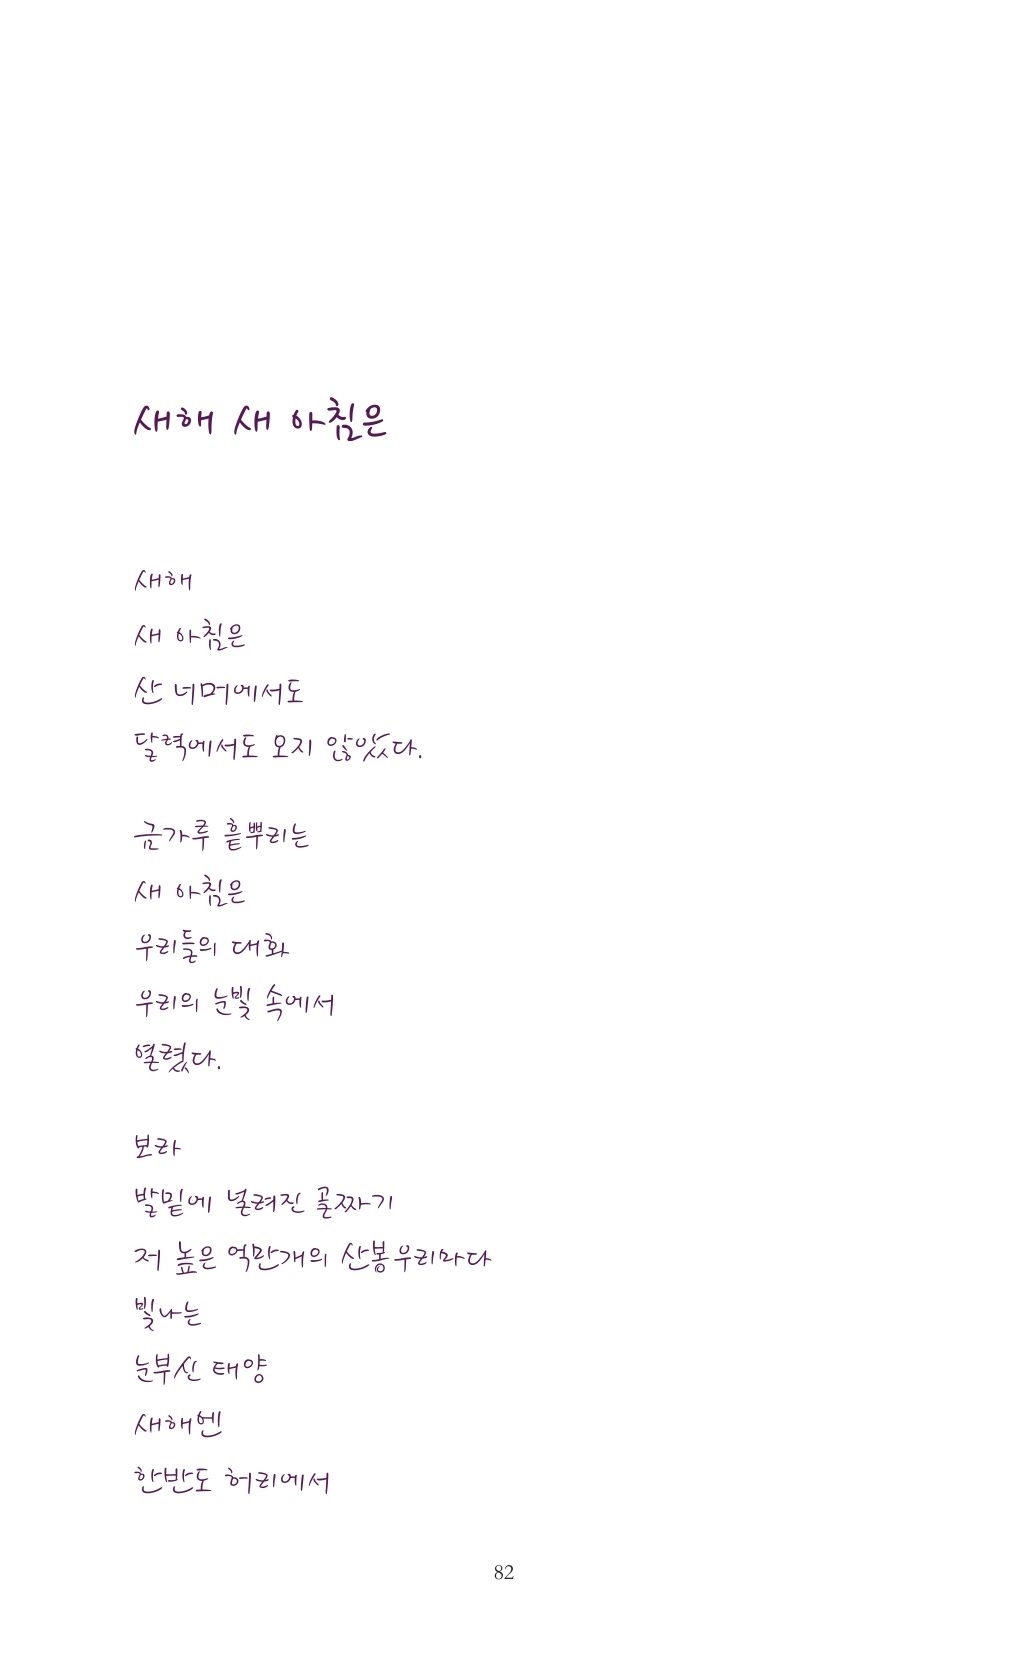 새해 새 아침은
새해
새 아침은
산 너머에서도
달력에서도 오지 않았다.
금가루 흩뿌리는
새 아침은
우리들의 대화
우리의 눈빛 속에서
열렸다.
보라
발밑에 널려진 골짜기
저 높은 억만개의 산봉우리마다
빛나는
눈부신 태양
새해엔
한반도 허리에서
82